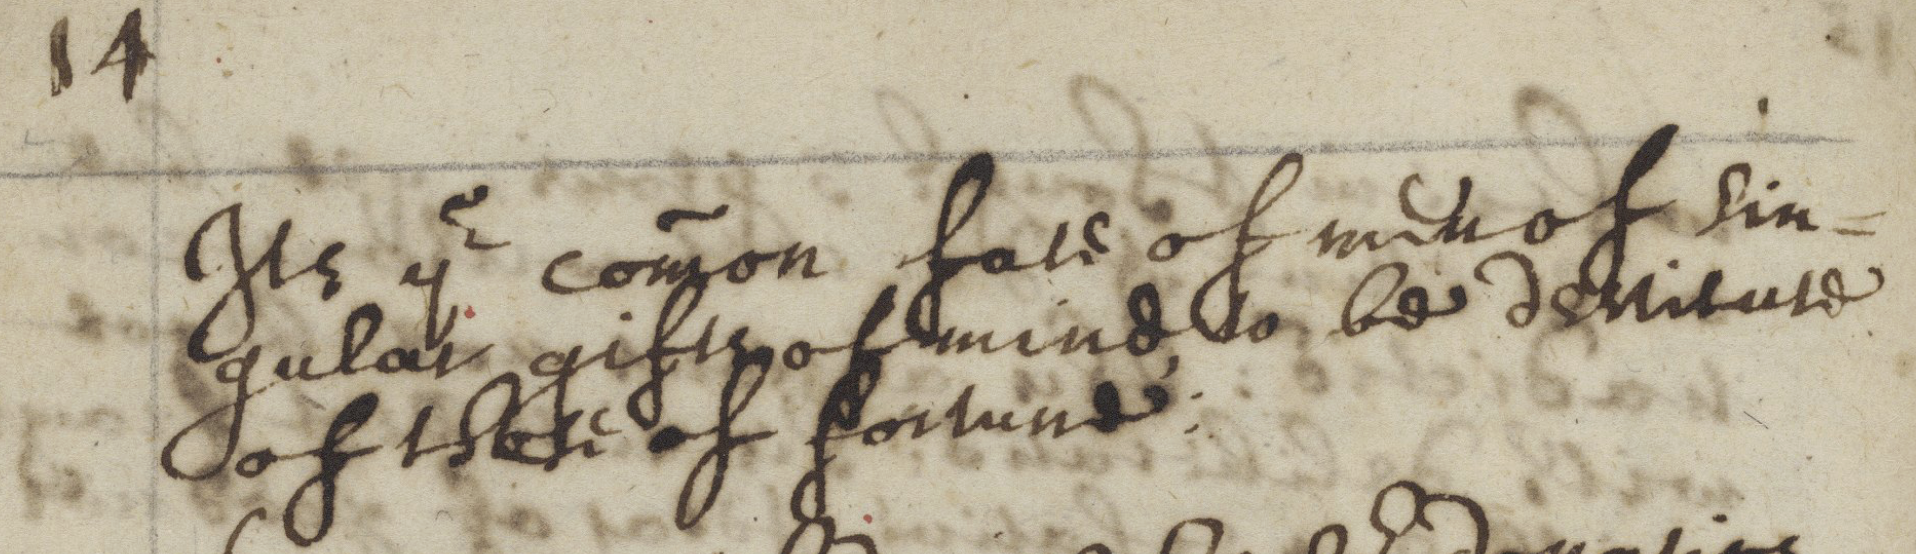 14
Its yͤ com̄on fate of men of sin=
gular gifts of mind, to be destitute
of those of fortune: